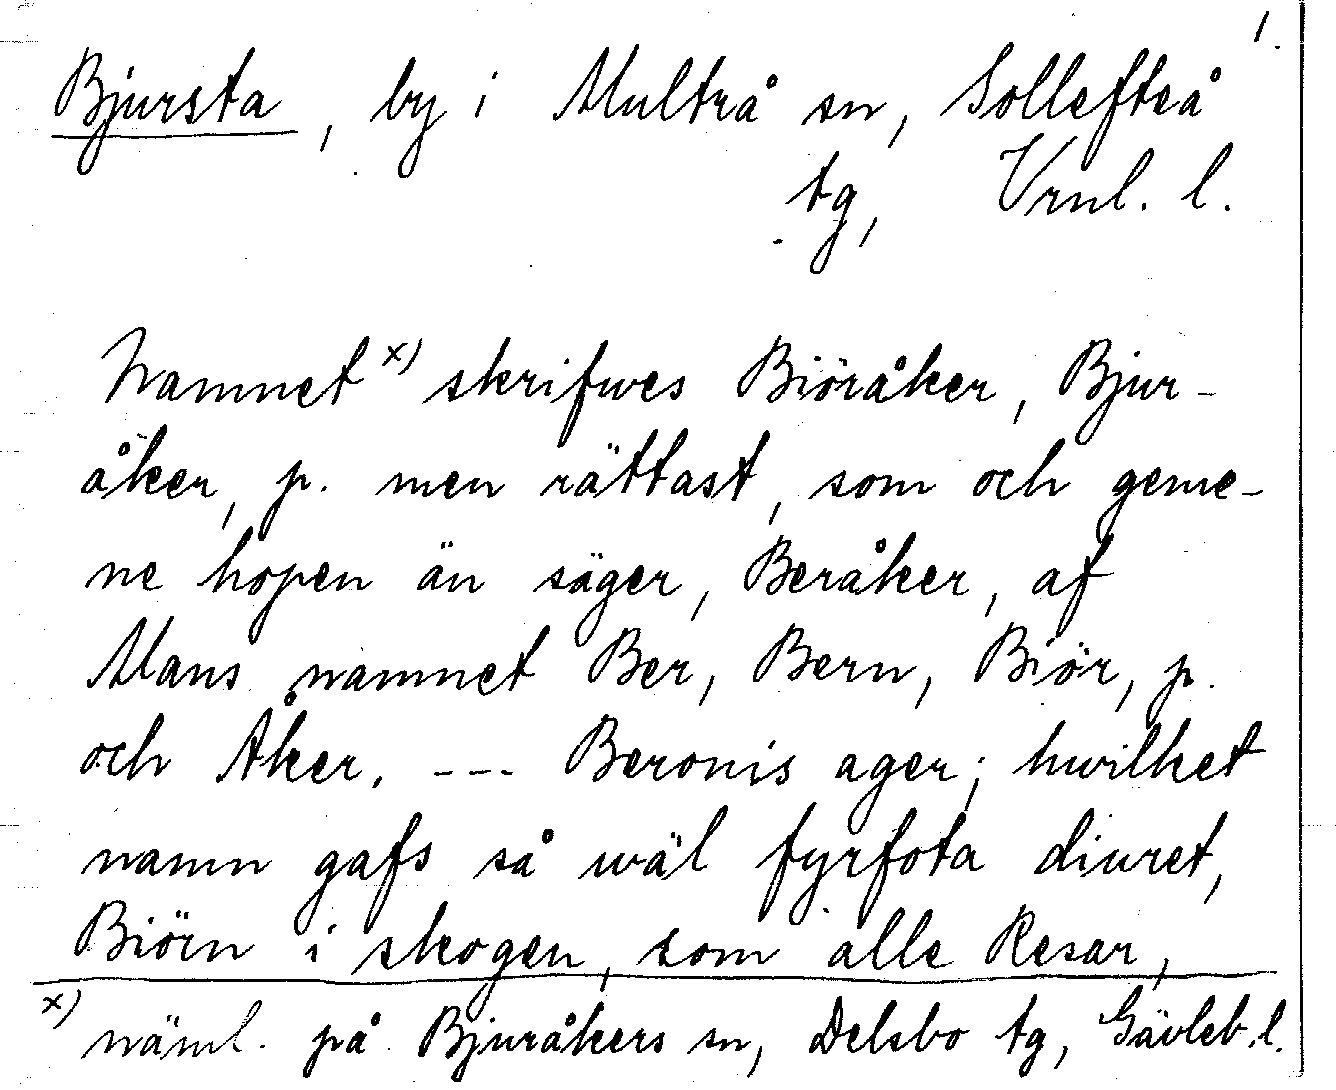 1.
Bjursta, by i Multrå sn, Sollefteå
tg, Vrnl. l.
Namnet x) skrifwes Biöråker, Bjur-
åker, p. men rättast, som och geme-
ne hopen än säger, Beråker, af
Mans namnet Ber, Bern, Biör, p.
och Åker. --- Beronis ager; hwilket
namn gafs så wäl fyrfota diuret,
Biörn i skogen, som alle Resar,
x) näml. på Bjuråkers sn, Delsbo tg, Gävleb. l.